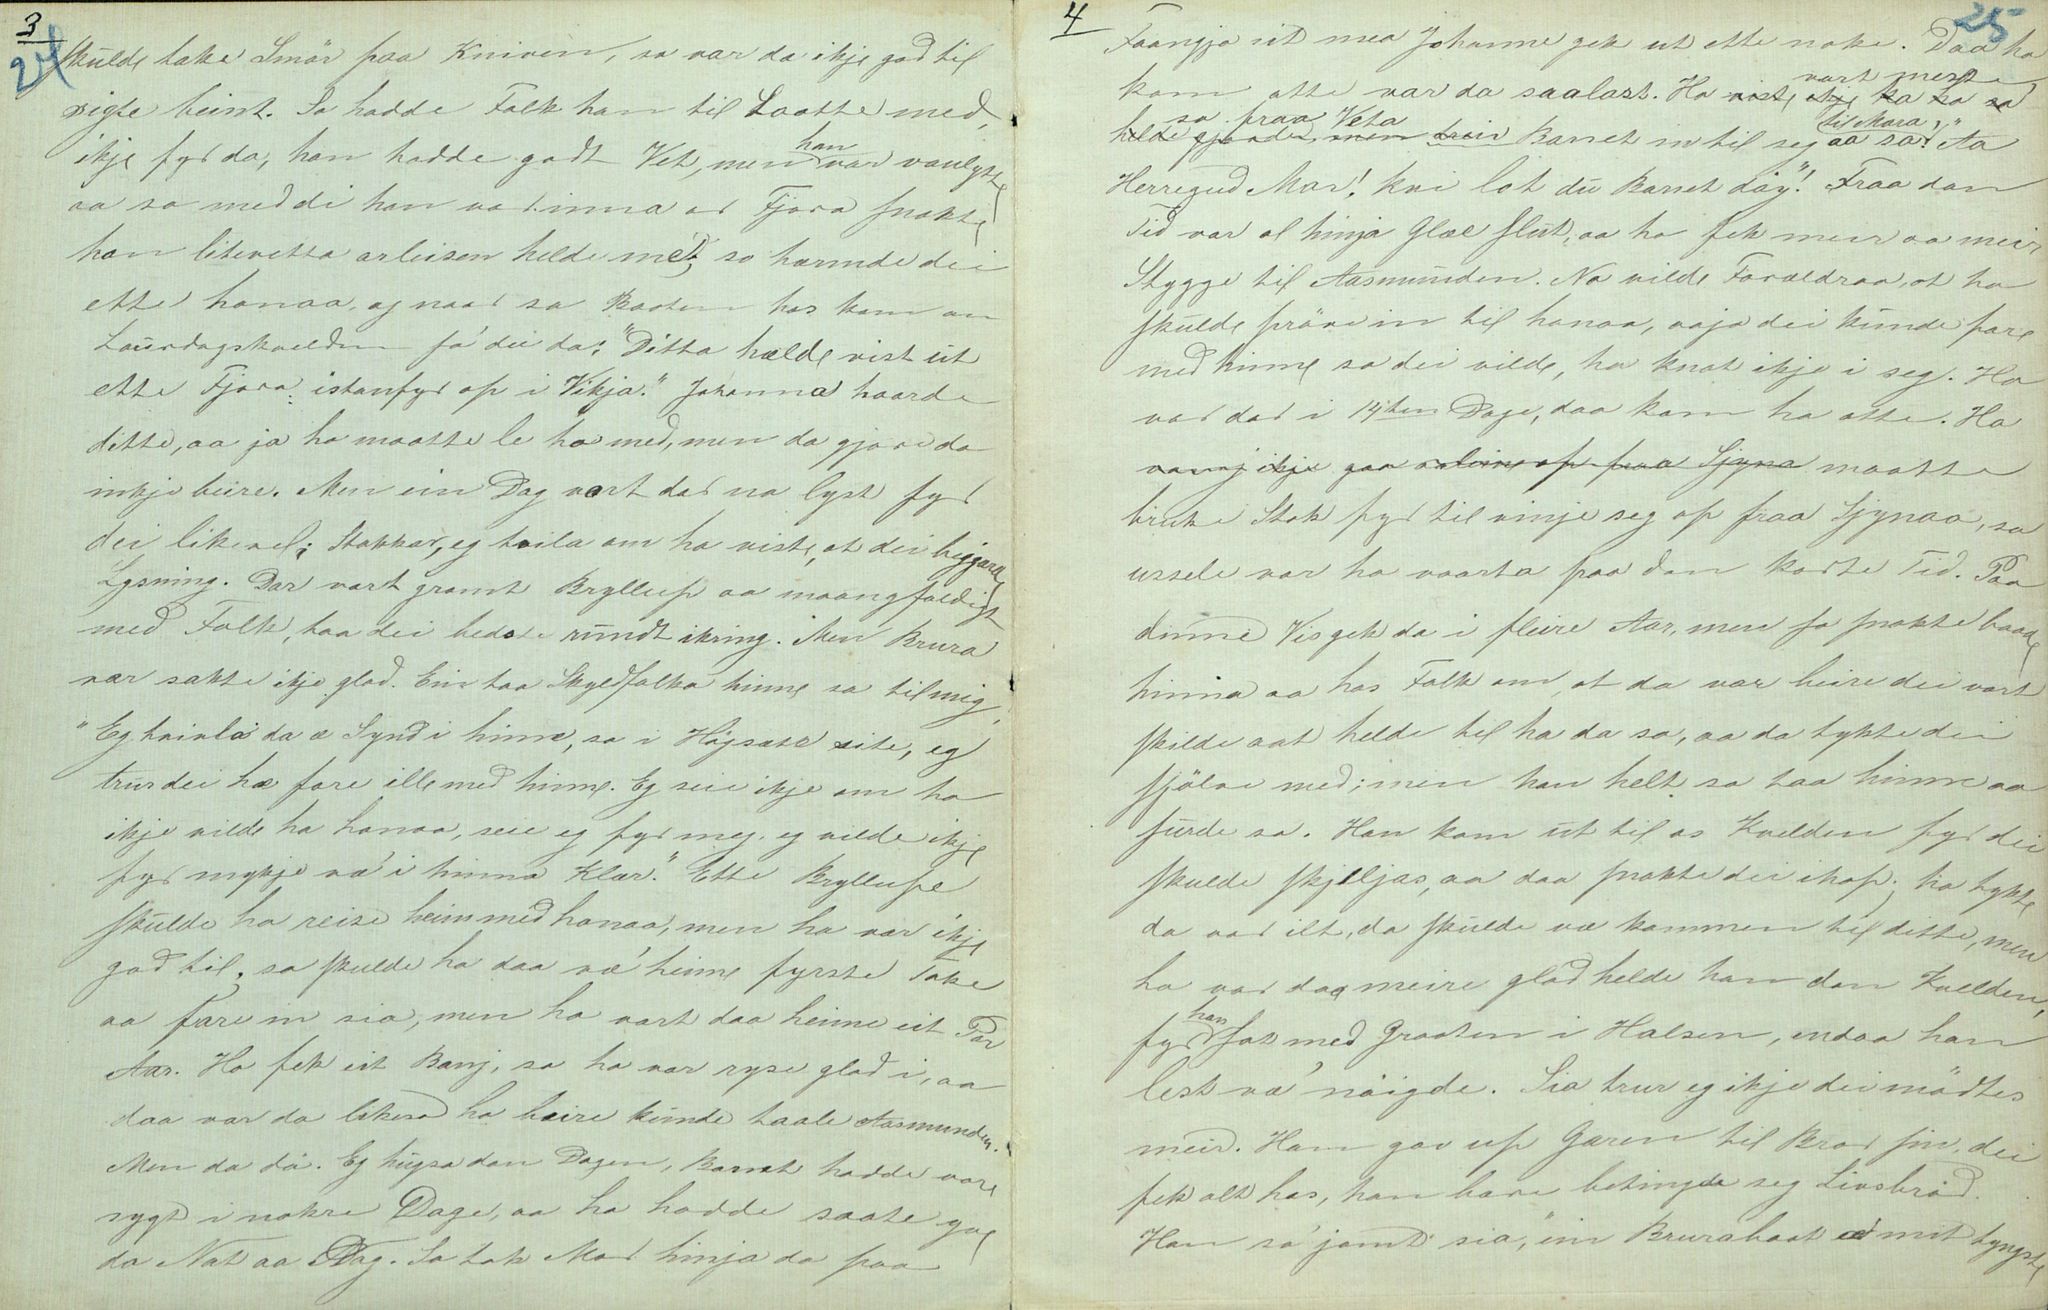 3
24
skulde take Smör paa Kniven, so var da ikje god til
rigte beint. So hadde Folk han til Laatte med,
ikje fyr da, han hadde godt Vet, men han var vanlyste
aa so meddi han var inna or Fjora snakte
han litevetta arleisen helde me; so hærmde dei
ette honaa, og naar so Baaten has kom om
Laurdagskvelden sa' dei da: "Ditta hælde vist ut
ette Fjora istanfyr op i Vikja." Johanna haarde
ditte, aa ja ho maatte le ho med, men da gjore da
inkje beire. Men ein Dag vart dar na lyst fyr
dei likevel; Stakkar, eg tvila om ho viste, at dei begjærte
Lysning. Dar vart gromt Bryllup aa maangfoldigt
med Folk, taa dei beste rundt ikring. Men Brura
var sakte ikje glad. Ein taa Skyldfolka hinne sa til mig,
"Eg tvila da æ Synd i hinne, so i Højsæte site, eg
trur dei hæ fare ille med hinne. Eg seie ikje om ho
ikje vilde ha honaa, seie eg fyr meg, eg vilde ikje
fyr mykje væ' i hinna Klær." Ette Bryllupe
skulde ho reise heim med honaa, men ho var ikje
god til, so skulde ho daa væ' heime fyrste Take
aa fare in sia, men ho vart daa heime eit Par
Aar. Ho fek eit Banj, so ho var ryse glad i, aa
daa var da likesod ho beire kunde taale Aasmunden.
Men da dö. Eg hugsa dan Dagen, Barnet hadde vore
sygt i nokre Dage, aa ho hadde saate yve
da Nat aa Dag. So tok Mor hinja da paa
4
25
Faangja sit mea Johanne gek ut ette noke. Daa ho
kom atte var da saalast. Ho viste ikje ka ho sa vart meste
helde gjorde, men dreiv so fraa Veta Barnet in til seg aa sa til Mora; "Aa
Herregud Mor! kvi lot du Barnet döy"! Fraa dan
Tid var al hinja Glæe slut, aa ho fek meir aa meir
Stygge til Aasmunden. No vilde Foreldraa, at ho
skulde pröve in til honaa, aaja dei kunde fare
med hinne so dei vilde, ho knot ikje i seg. Ho
var dar i 14ten Dage, daa kom ho atte. Ho
vanj ikje gaa aaleine op fraa Sjyna maatte
bruke Stok fyr til vinje seg op fraa Sjynaa, so
ussele var ho vaarta paa dan korte Tid. Paa
dinne Vis gek da i fleire Aar, men so snakte baade
hinna aa has Folk om, at da var beire dei vart
skilde aat helde til ha da so, aa da tykte dei
sjölve med; men han helt so taa hinne aa
surde so. Han kom ut til os Kvelden fyr dei
skulde skjiljas, aa daa snakte dei ihop; ho tykte
da var ilt, da skulde væ kommen til ditte, men
ho var daa meire glad helde han dan Kvelden,
fyr han sat med Graaten i Halsen, endaa han
lest væ' nöigde. Sia trur eg ikje dei mödtes
meir. Han gav up Garen til Bror sin, dei
fek alt has, han bare betingde seg Livsbröd.
Han sa' jamt sia, "ein Bruraboat æ mit tyngste